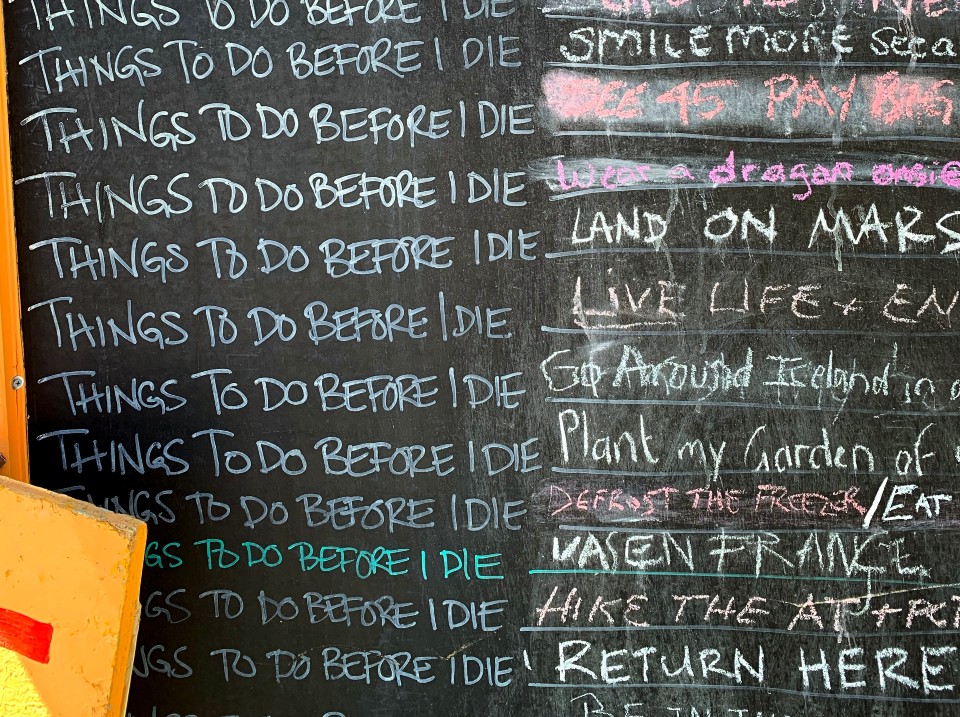 THINGS TO DO BEFORE I DIE
THINGS TO DO BEFORE I DIE SMILE MORE
THINGS TO DO BEFORE I DIE SEE 45 PAY
THINGS TO DO BEFORE I DIE Wear a dragon onsie
THINGS TO DO BEFORE I DIE LAND ON MARS
THINGS TO DO BEFORE I DIE LIVE LIFE + EN
THINGS TO DO BEFORE I DIE Go Around Ireland in a
THINGS TO DO BEFORE I DIE Plant my Garden of
THINGS TO DO BEFORE I DIE DEFROST THE FREEZER / EAT
GS TO DO BEFORE I DIE FRANCE
GS TO DO BEFORE I DIE HIKE THE AT +
NGS TO DO BEFORE I DIE RETURN HERE
BE IN